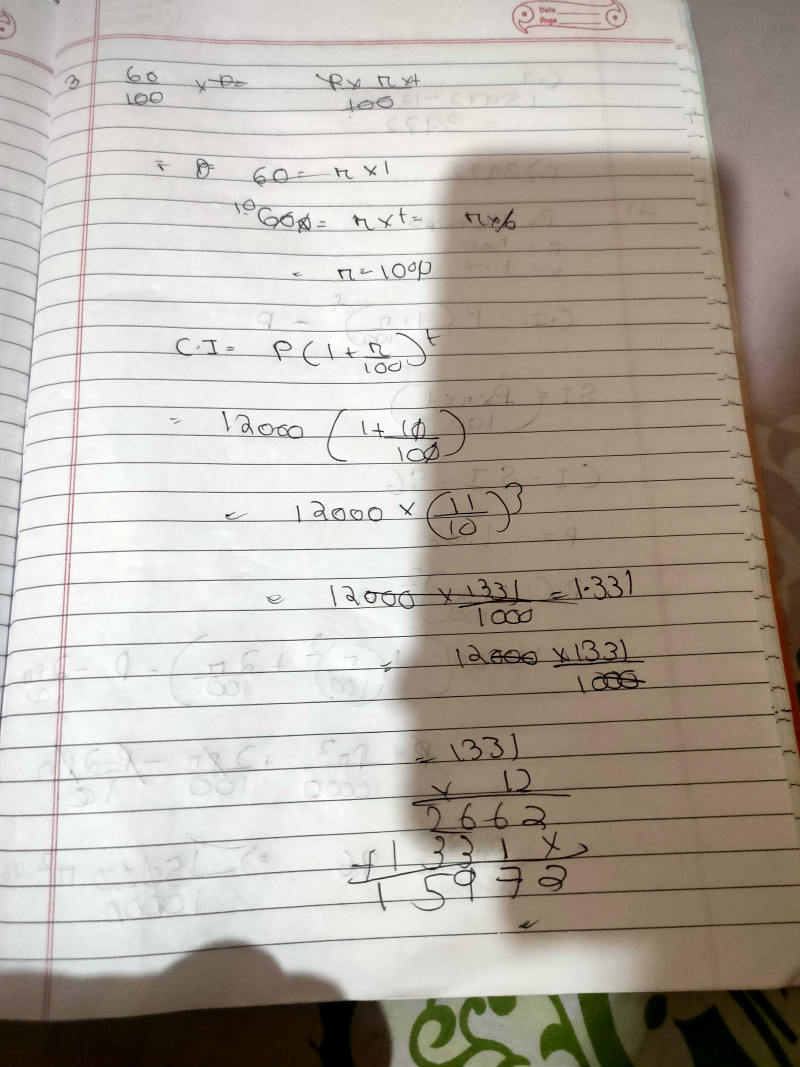 Date
Page
3 60/100 × P = P × r × t / 100
= 60 = r × 1
10 600 = r × t = r × 6
= r = 10%
C.I = P(1 + r/100)^t
= 12000 (1 + 10/100)
= 12000 × (11/10)^3
= 12000 × 1331/1000 = 1.331
= 12000 × 1331/1000
= 1331
× 12
2662
+ 1331×
15972